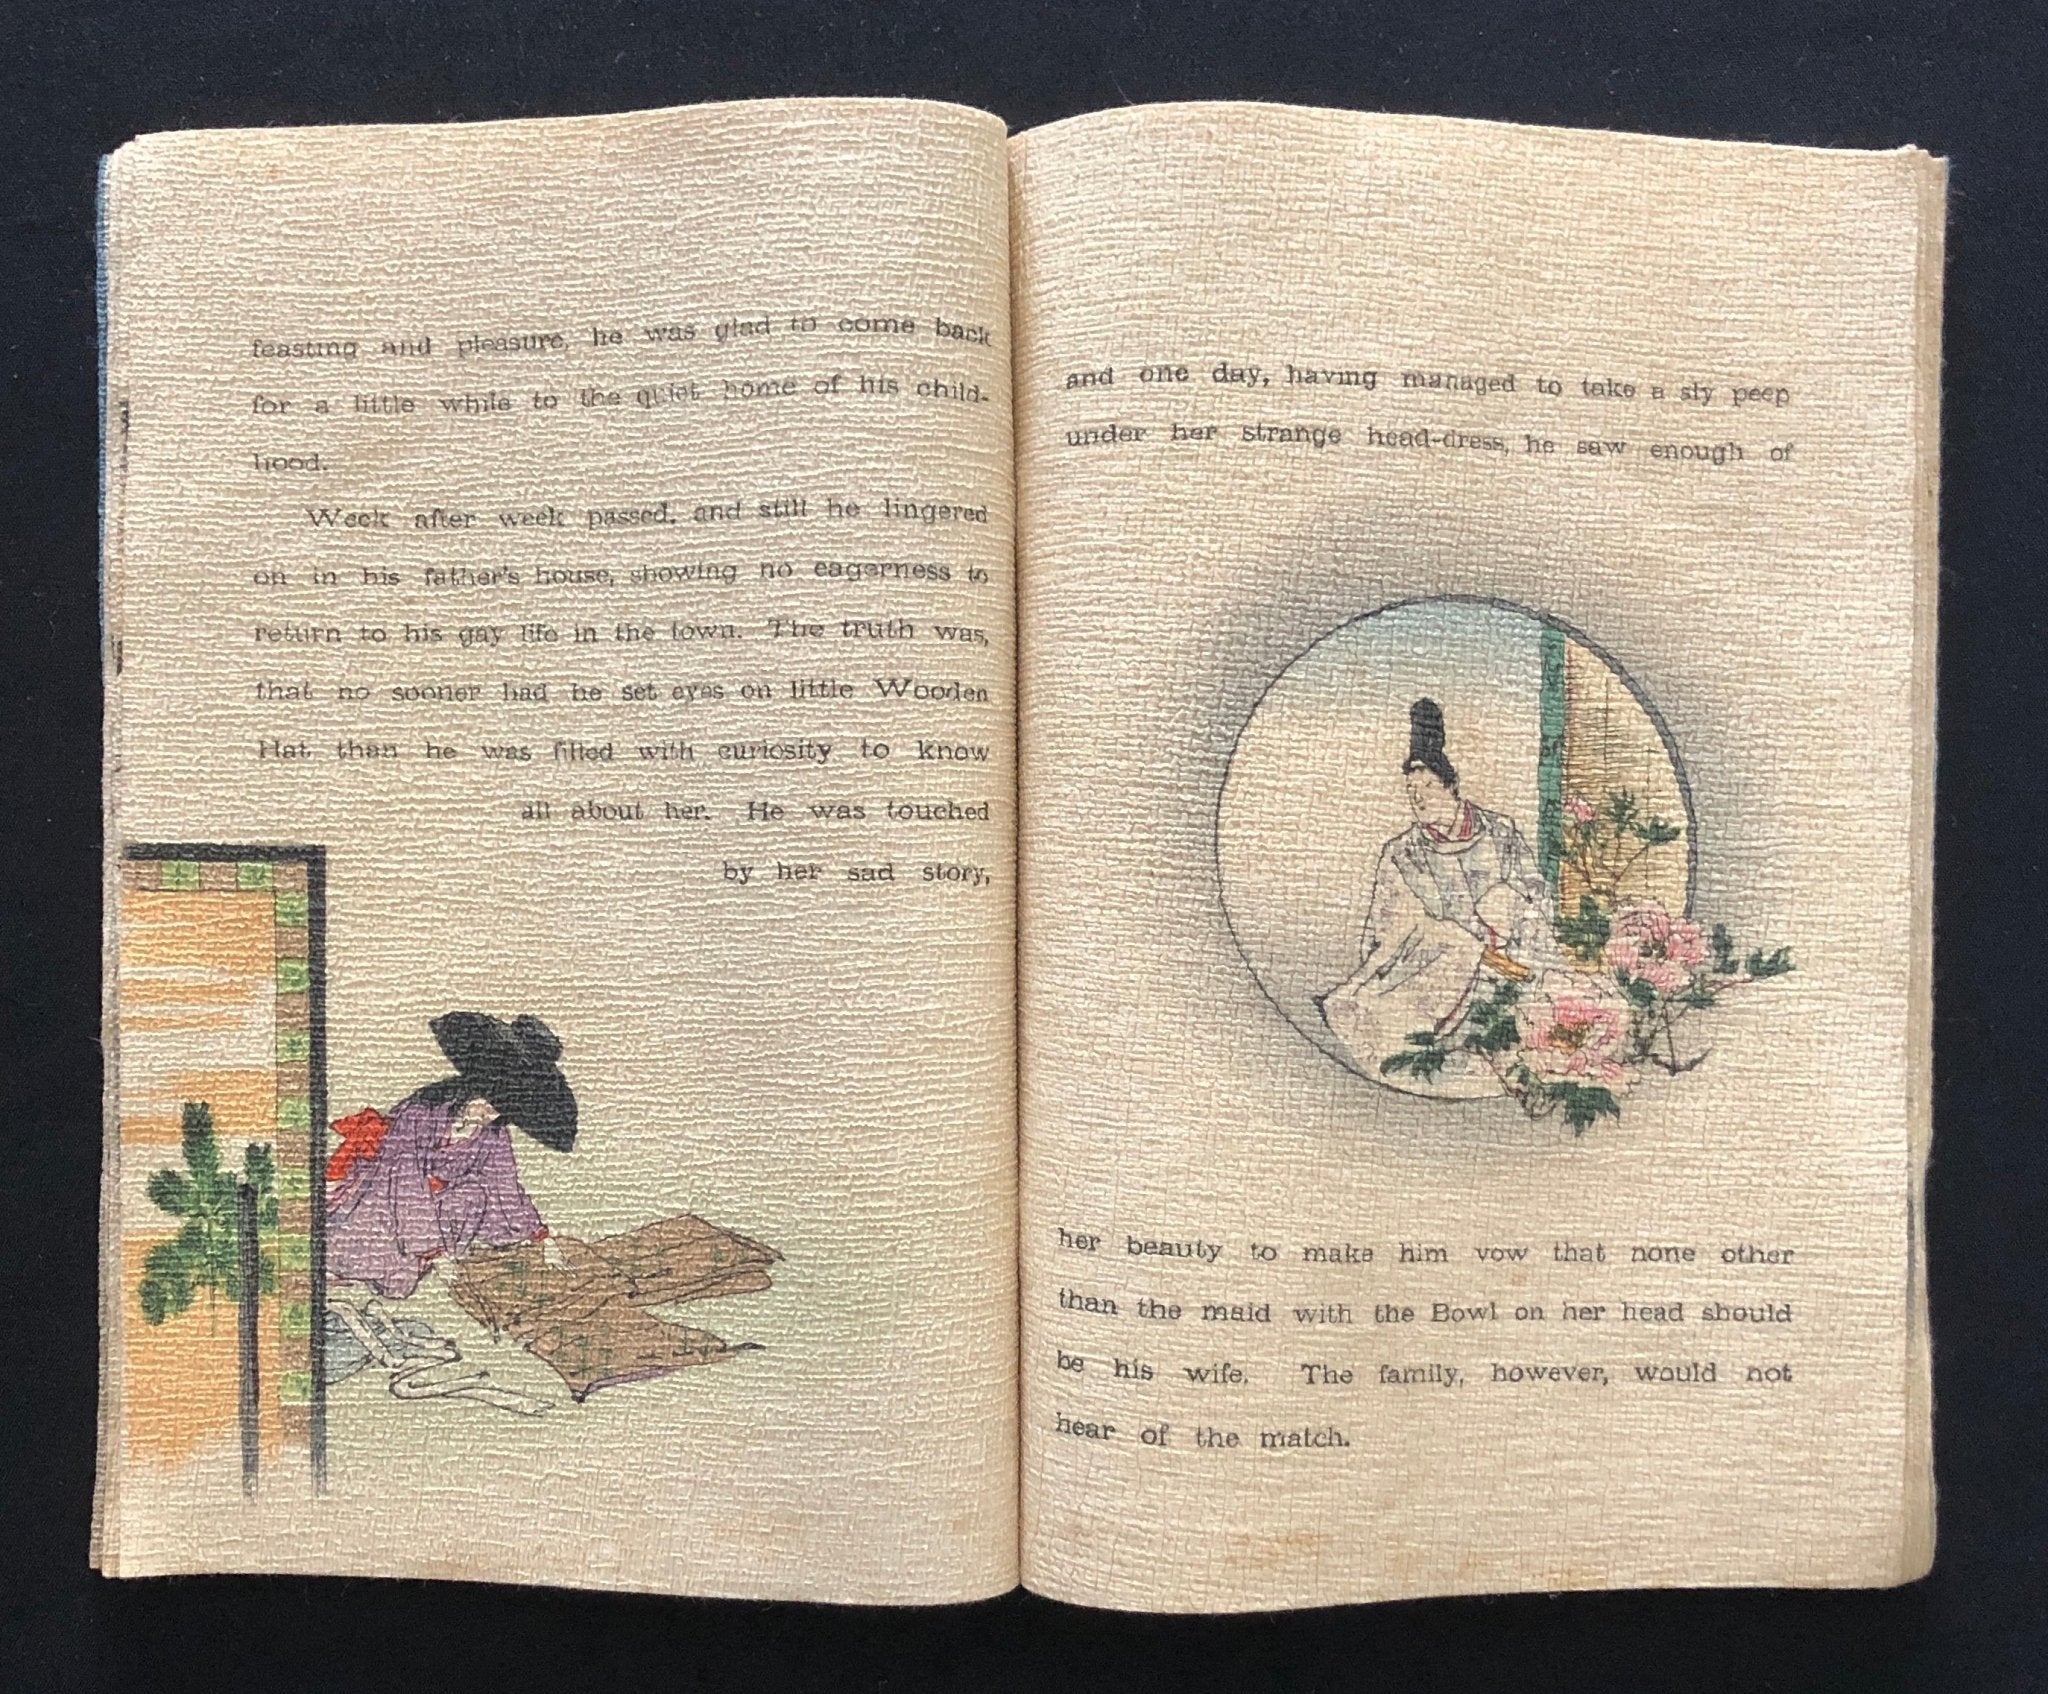 feasting and pleasure, he was glad to come back
for a little while to the quiet home of his child-
hood.
Week after week passed, and still he lingered
on in his father's house, showing no eagerness to
return to his gay life in the town. The truth was,
that no sooner had he set eyes on little Wooden
Hat than he was filled with curiosity to know
all about her. He was touched
by her sad story,
and one day, having managed to take a sly peep
under her strange head-dress, he saw enough of
her beauty to make him vow that none other
than the maid with the Bowl on her head should
be his wife. The family, however, would not
hear of the match.